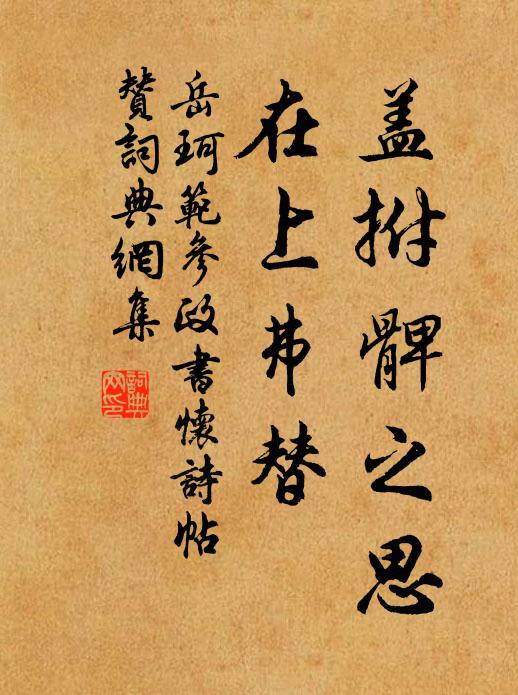 盖拊髀之思
在上弗替
岳珂範參政書懷詩帖
贊詞典網集
詞典
网印